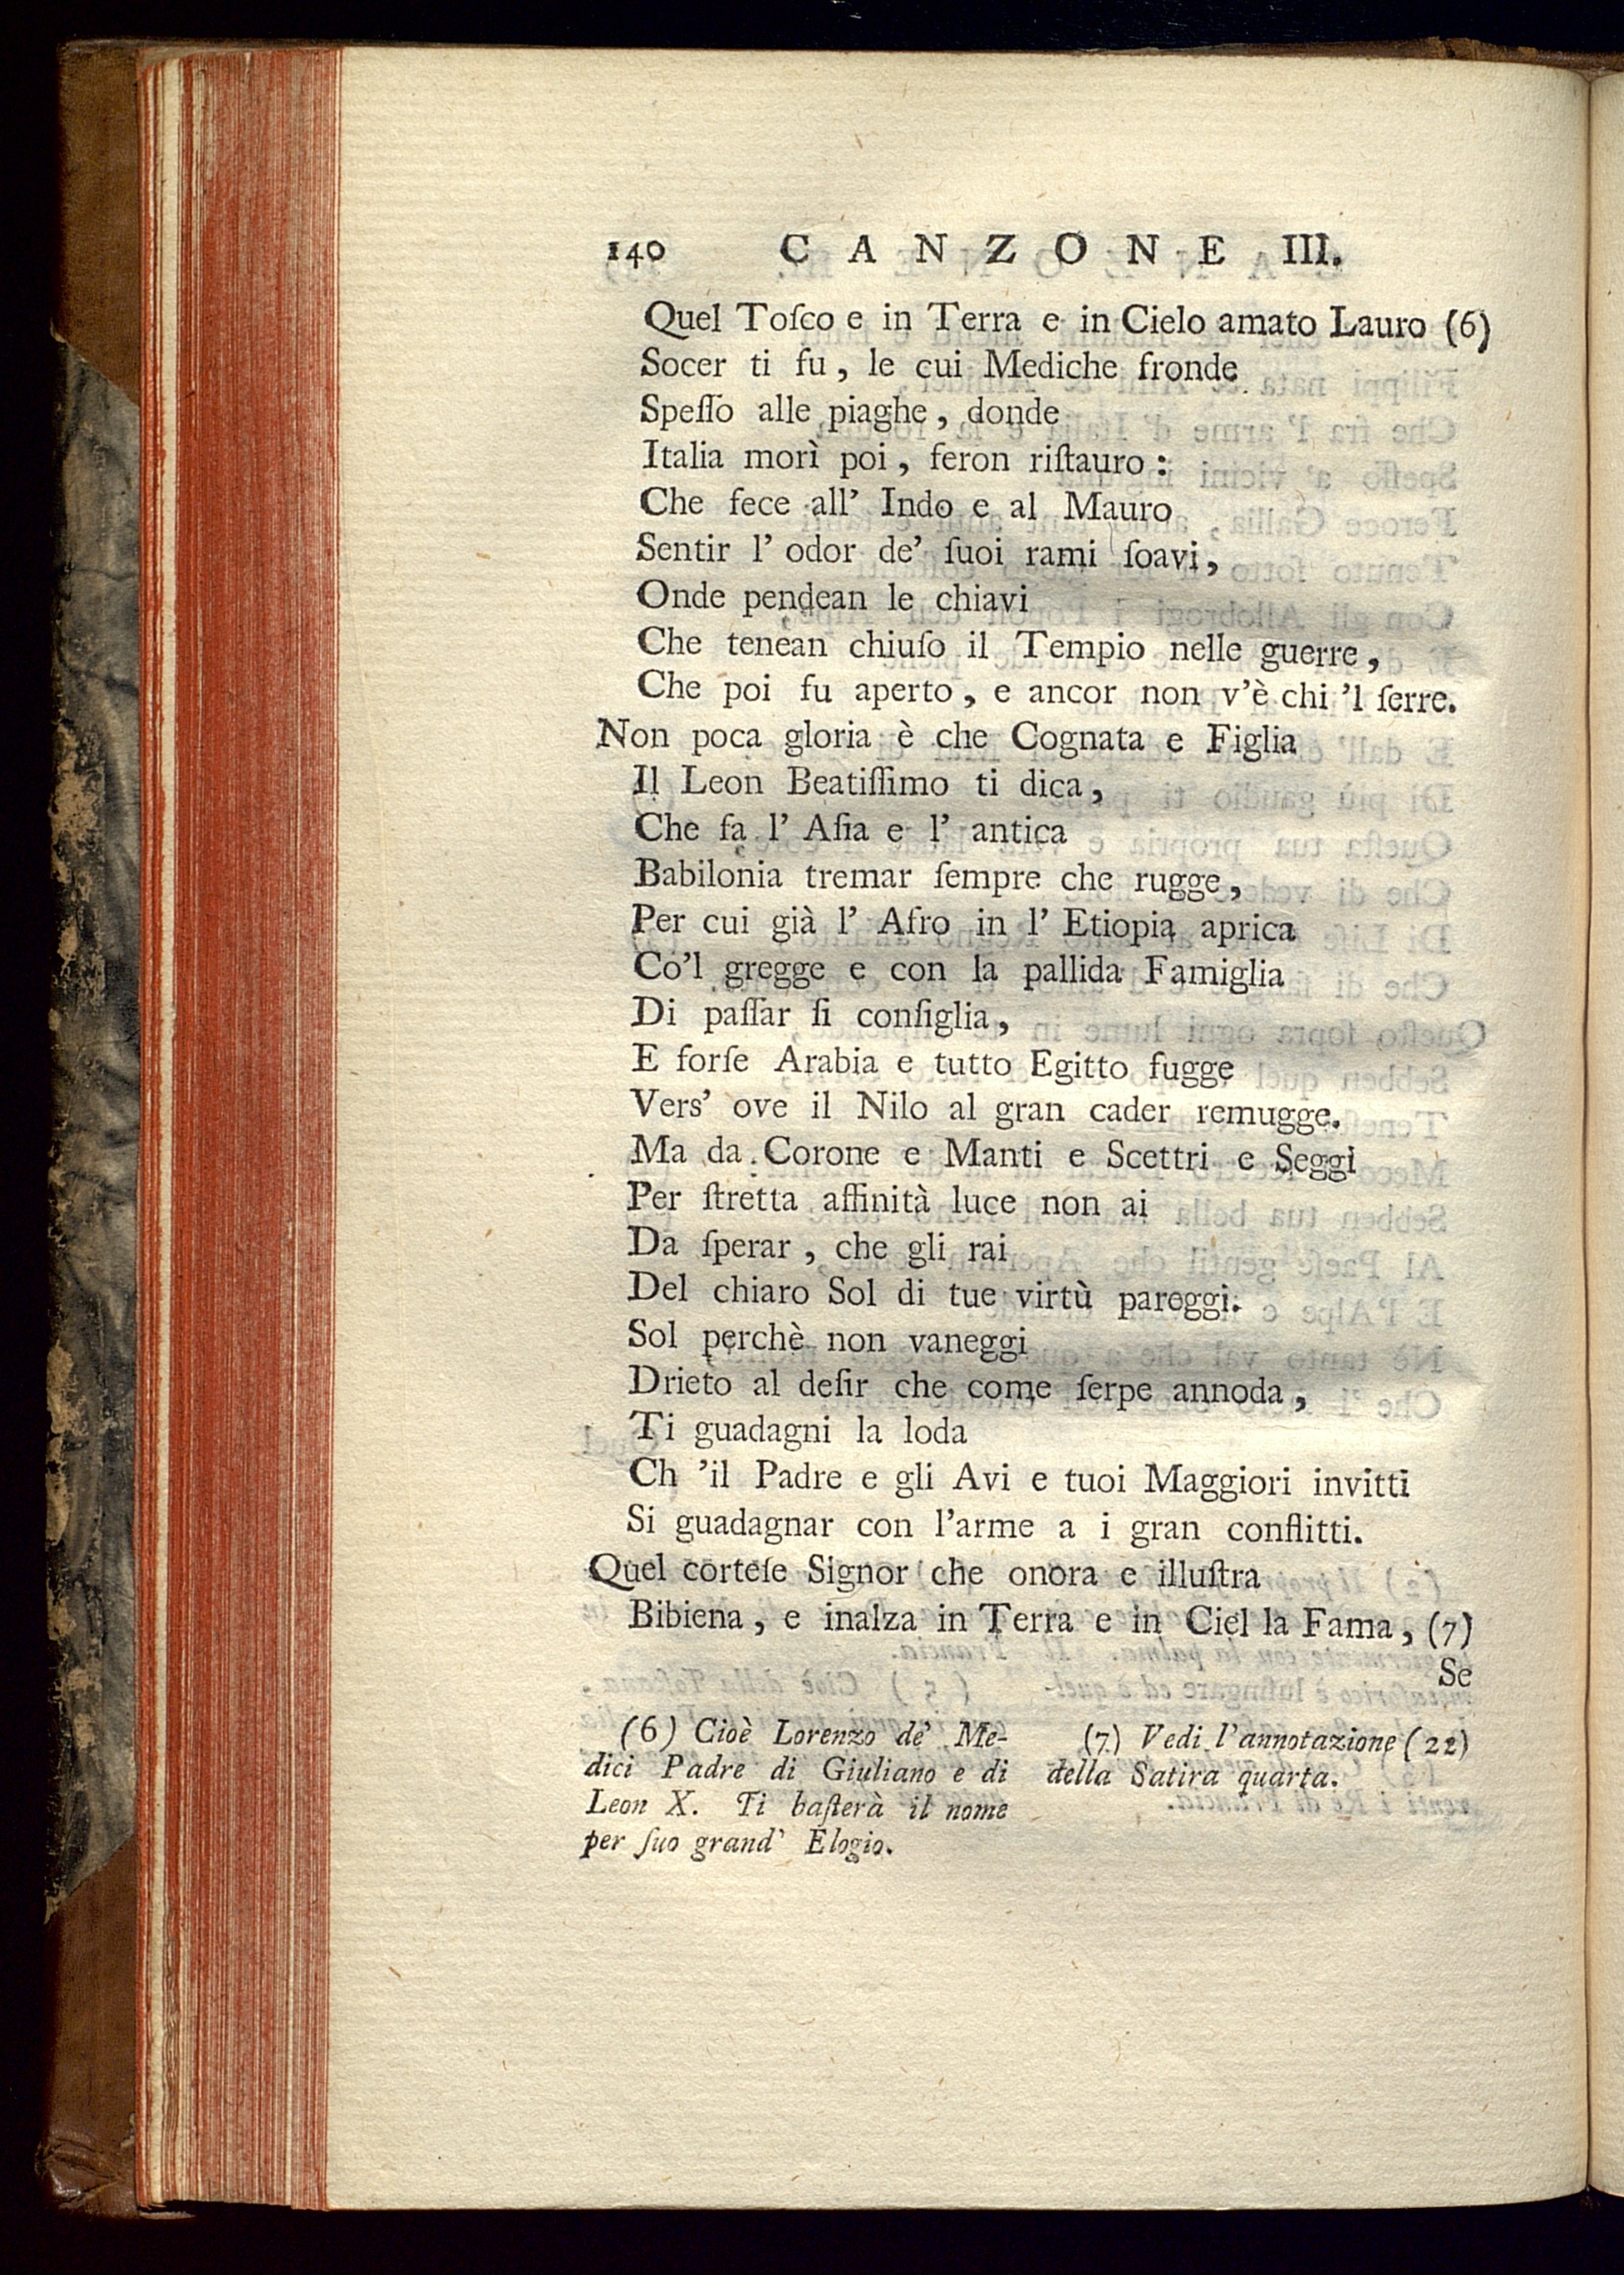 140 CANZONE III.
Quel Toſco e in Terra e in Cielo amato Lauro (6)
Socer ti fu, le cui Mediche fronde
Speſſo alle piaghe, donde
Italia morì poi, feron riſtauro:
Che fece all' Indo e al Mauro
Sentir l' odor de' ſuoi rami ſoavi,
Onde pendean le chiavi
Che tenean chiuſo il Tempio nelle guerre,
Che poi fu aperto, e ancor non v'è chi 'l ſerre.
Non poca gloria è che Cognata e Figlia
Il Leon Beatiſſimo ti dica,
Che fa l' Aſia e l' antica
Babilonia tremar ſempre che rugge,
Per cui già l' Afro in l' Etiopia aprica
Co'l gregge e con la pallida Famiglia
Di paſſar ſi conſiglia,
E forſe Arabia e tutto Egitto fugge
Vers' ove il Nilo al gran cader remugge.
Ma da Corone e Manti e Scettri e Seggi
Per ſtretta affinità luce non ai
Da ſperar, che gli rai
Del chiaro Sol di tue virtù pareggi.
Sol perchè non vaneggi
Drieto al deſir che come ſerpe annoda,
Ti guadagni la loda
Ch 'il Padre e gli Avi e tuoi Maggiori invitti
Si guadagnar con l'arme a i gran conflitti.
Quel corteſe Signor che onora e illuſtra
Bibiena, e inalza in Terra e in Ciel la Fama, (7)
Se
(6) Cioè Lorenzo de' Me-
dici Padre di Giuliano e di
Leon X. Ti baſterà il nome
per ſuo grand' Elogio.
(7) Vedi l'annotazione (22)
della Satira quarta.